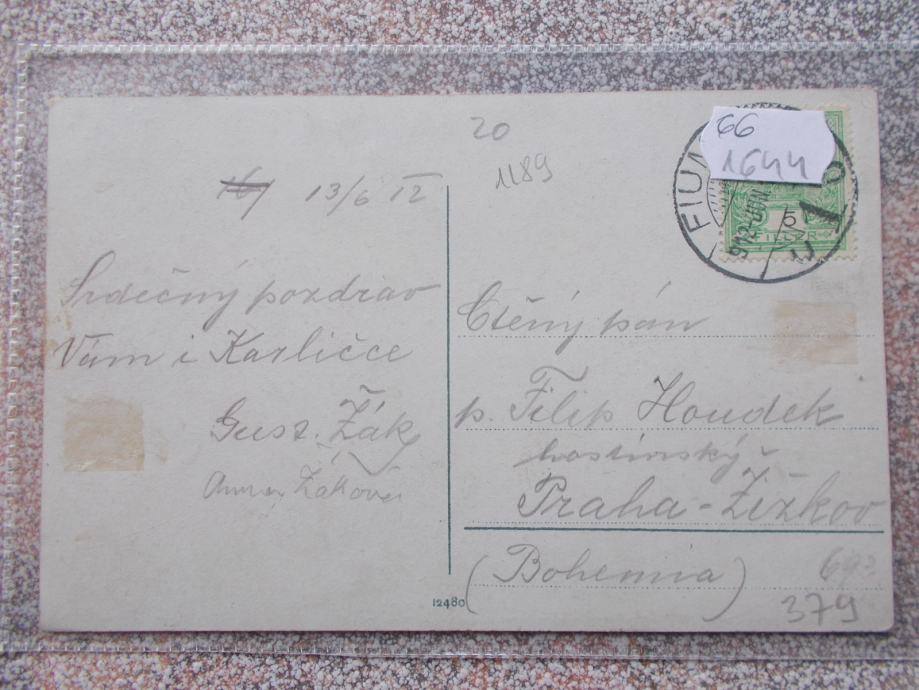 20
1189
66
1644
13/6 12
FIUM
912 JUN
5
FILLÉR
Srdečný pozdrav
Vám i Karličce
Gust. Žák
Anna Žáková
Ctěný pán
p. Filip Houdek
hostinský
Praha-Žižkov
(Bohemia)
379
12480